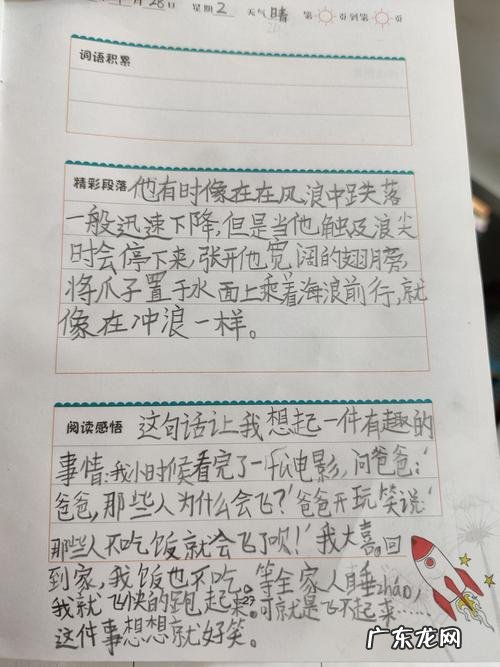 月28日 星期2 天气晴 第 页到第 页
词语积累
精彩段落 他有时像在在风浪中跌落
一般迅速下降,但是当他触及浪尖
时会停下来,张开他宽阔的翅膀,
将爪子置于水面上乘着海浪前行,就
像在冲浪一样。
阅读感悟 这句话让我想起一件有趣的
事情:我小时候看完了一部电影,问爸爸:“
爸爸,那些人为什么会飞?”爸爸开玩笑说“
那些人不吃饭就会飞了呗!”我大喜。回
到家,我饭也不吃。等全家人睡zháo,
我就飞快的跑起来。可就是飞不起来……
这件事想想就好笑。
广东龙网